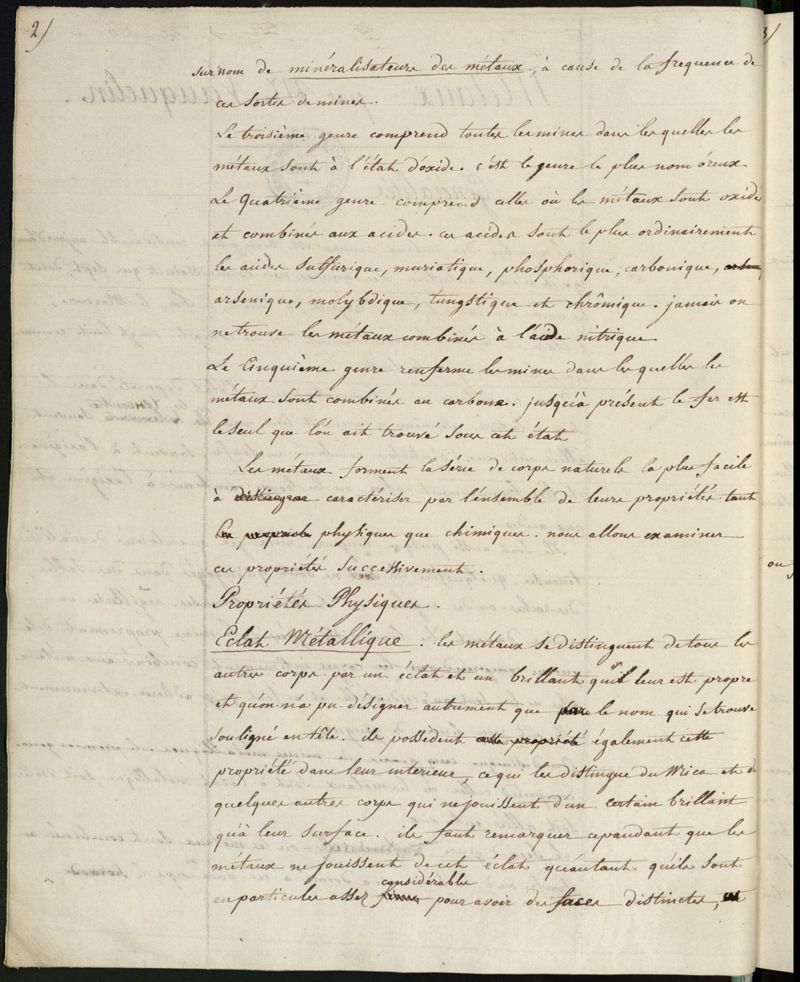 2)
surnom de minéralisateurs des métaux, à cause de la frequence de
ces sortes de mines.
Le troisième genre comprend toutes les mines dans lesquelles les
métaux sont à l'état d'oxide. c'est le genre le plus nombreux
Le quatrième genre comprend celles où les métaux sont oxidés
et combinés aux acides. ces acides sont le plus ordinairement
les acides sulfurique, muriatique, phosphorique, carbonique,
arsenique, molybdique, tungstique et chrômique. jamais on
ne trouve les métaux combinés à l'acide nitrique
Le Cinquième genre renferme les mines dans lesquelles les
métaux sont combinés au carbone. jusqu'à présent le fer est
le seul que l'on ait trouvé sous cet état
Les métaux forment la série de corps naturels la plus facile
à distinguer caractériser par l'ensemble de leurs propriétés tant
physiques que chimiques. nous allons examiner
ces propriétés successivement.
Propriétés Physiques.
Eclat Métallique. les métaux se distinguent de tous les
autres corps par un éclat et un brillant qui leur est propre
et qu'on n'a pu désigner autrement que par le nom qui se trouve
souligné en tête. ils possèdent cette propriété également cette
propriété dans leur interieur, ce qui les distingue du Mica et de
quelques autres corps qui ne jouissent d'un certain brillant
qu'à leur surface. ils faut remarquer cependant que les
métaux ne jouissent de cet éclat qu'autant qu'ils sont
considérables
en particules assez pour avoir des faces distinctes, et
3)
ou